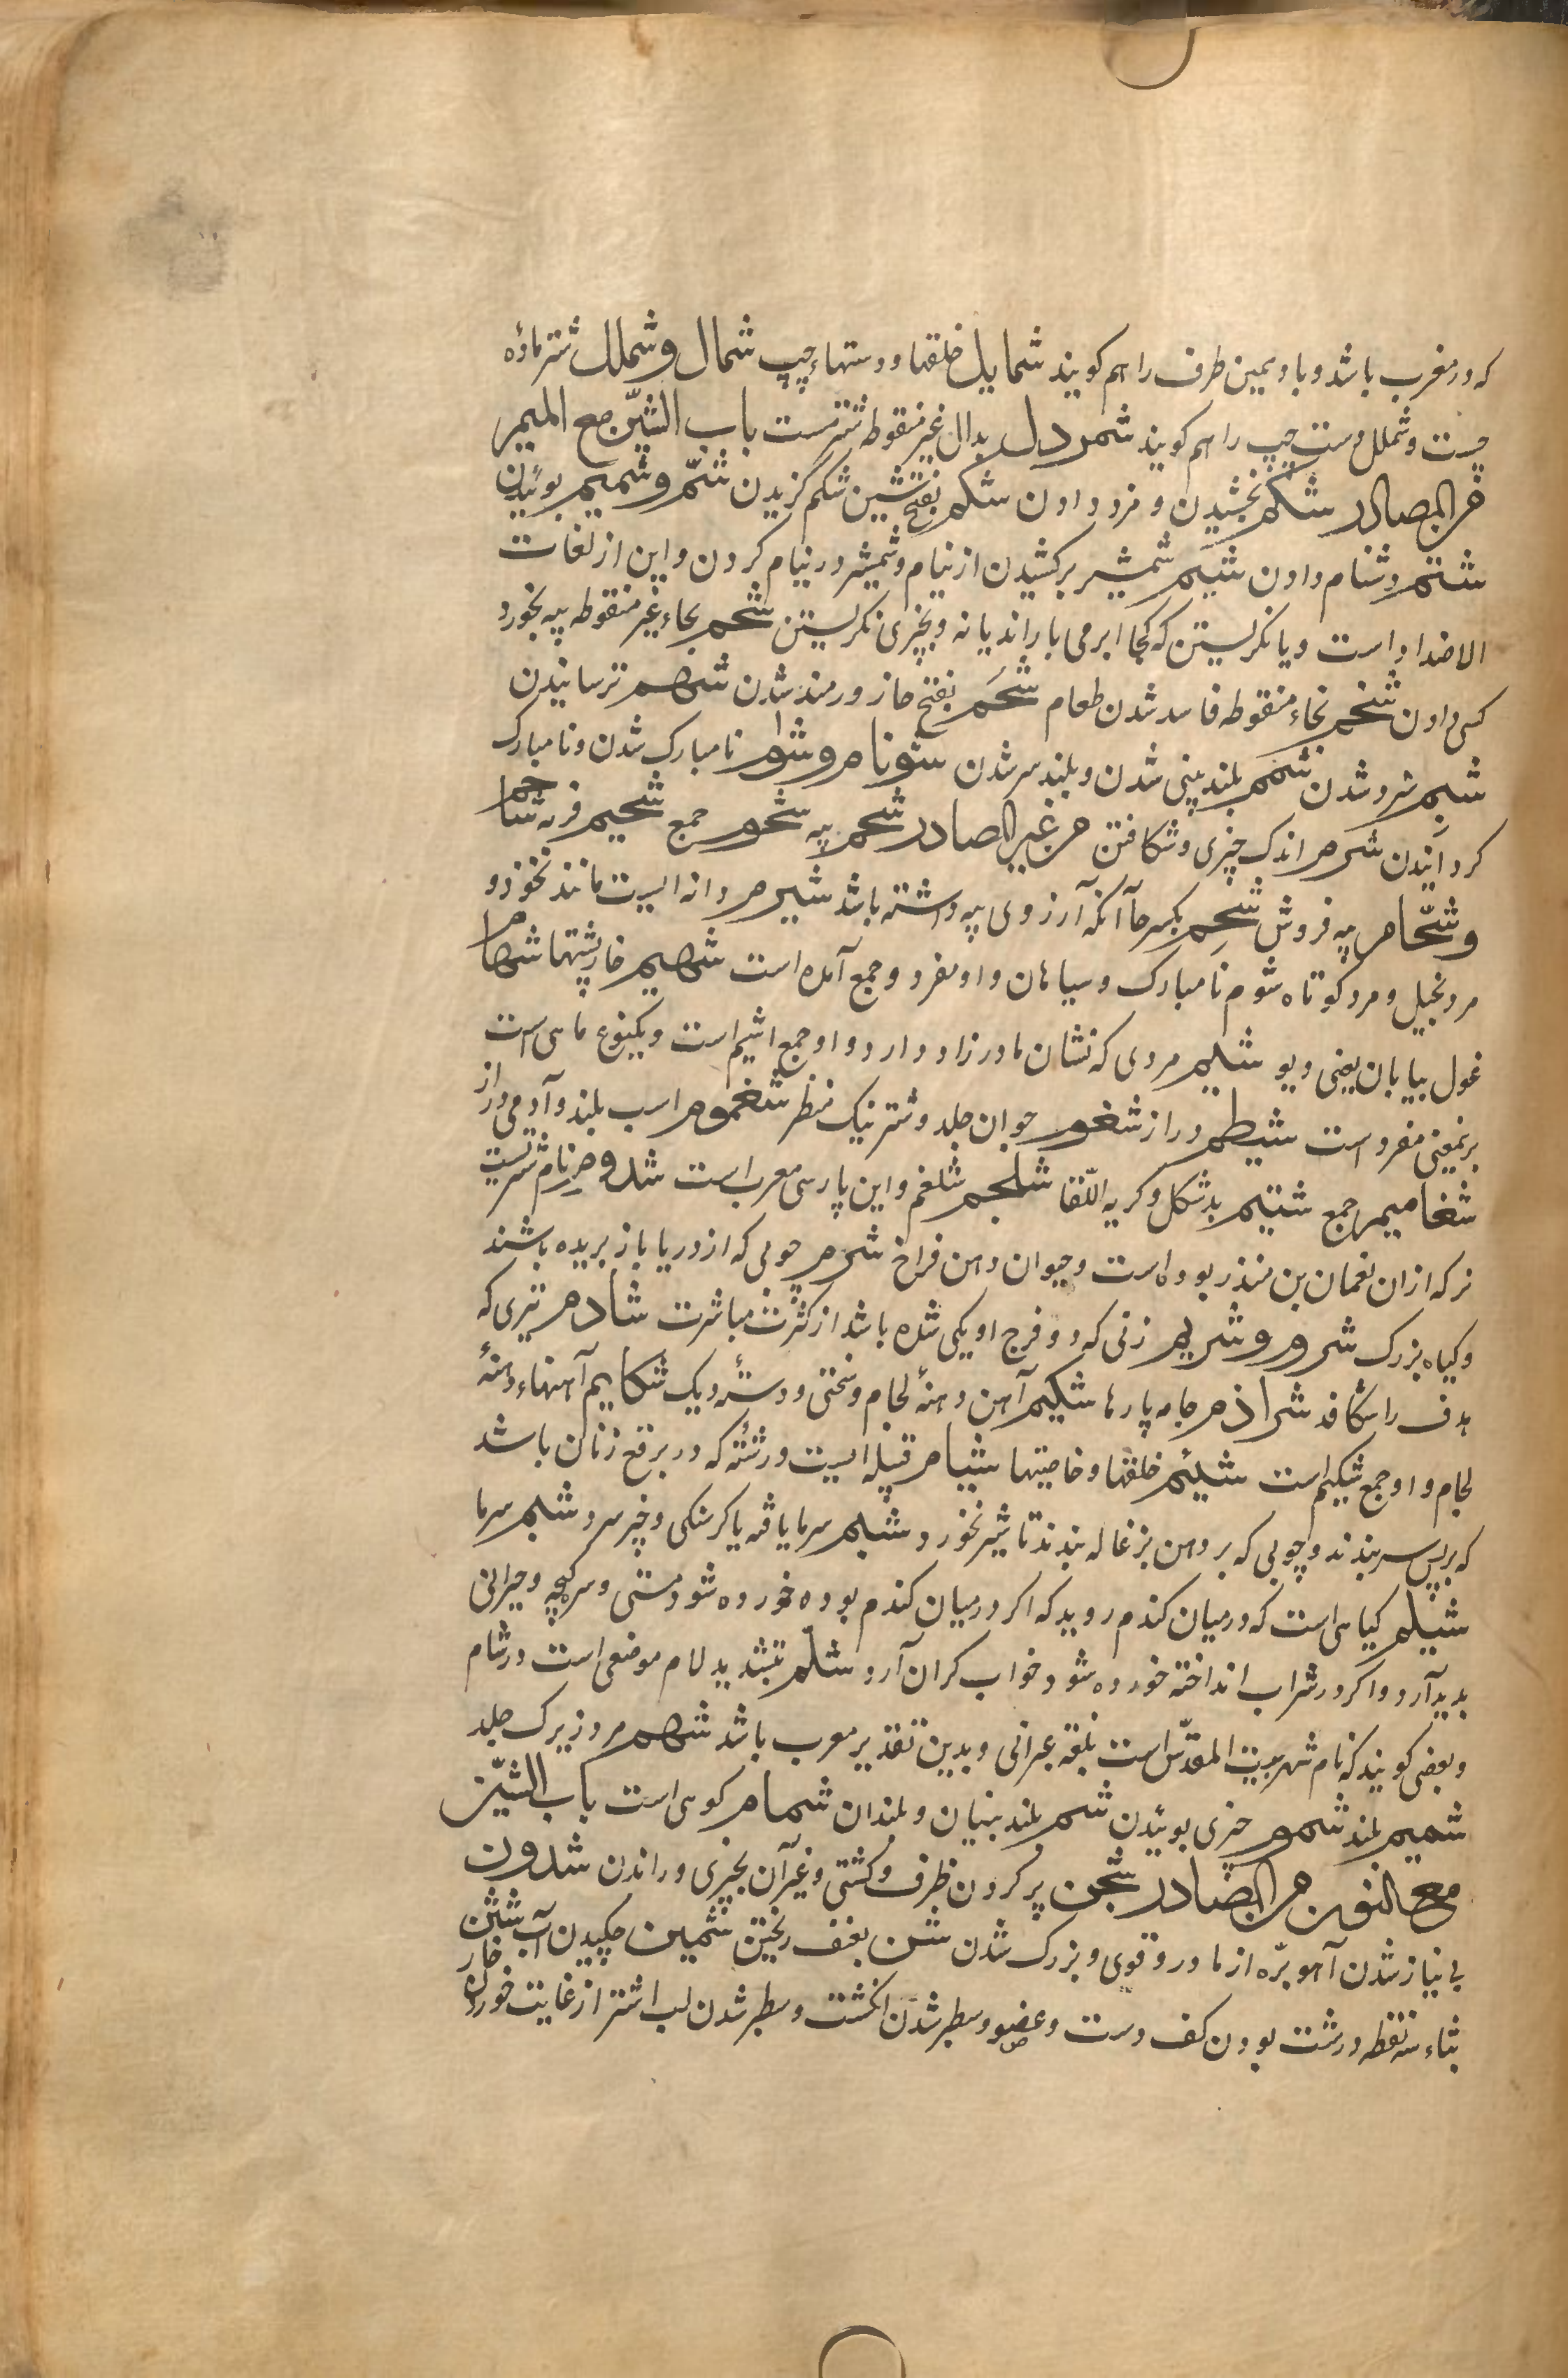 که در مغرب باشد و باد یمین طرف را هم کویند شمایل خلقها و دستهاء چپ شمال و شملل شتر ماده
چست و شملل دست چپ را هم کویند شمردل بدال غیر منقوطه شترمست باب الشین مع المیم
من المصادر شکم بخشیدن و مزد دادن شکم بفتح شین شکم کزیدن شم و شمیم بوئیدن
شتم دشنام دادن شیم شمشیر برکشیدن از نیام و شمشیر در نیام کردن و این از لغات
الاضداد است و یا نکریستن که کجا ابر می باراند یا نه و بچیزی نکریستن شحم بحاء غیر منقوطه پیه بخورد
کسی دادن شخم بخاء منقوطه فاسد شدن طعام شحم بفتح حا زورمند شدن شهم ترسانیدن
شبم سرد شدن شمم بلند بینی شدن و بلند سر شدن شونام و شوم نا مبارک شدن و نا مبارک
کردانیدن شرم اندک چیزی و شکافتن من غیر المصادر شحم پیه شحوم جمع شحیم فربه شاحم
و شحام پیه فروش شحم بکسر حا آنکه آرزوی پیه داشته باشد شیرم دانه ایست مانند نخود و
مرد بخیل و مرد کوتاه شوم نامبارک و سیاهان و او مفرد و جمع آمده است شهیم خارپشتها شهام
غول بیابان یعنی دیو شیم مردی که نشان مادرزاد دارد و او جمع اشیم است و یکنوع ماهی است
برینمعنی مفرد است شیظم دراز شغموم جوان جلد و شتر نیک منظر شغموم اسب بلند و آدمی دراز
شغامیم جمع شتیم بد شکل و کریه اللقا شلجم شلغم و این پارسی معرب است شدقم نام شتریست
نر که ازان نعمان بن منذر بوده است و حیوان دهن فراخ شرم چوبی که از دریا باز بریده باشند
و کیاه بزرک شروم و شریم زنی که دو فرج او یکی شده باشد از کثرت مباشرت شادم تیری که
هدف را شکافد شراذم جامه پارها شکیم آهن دهنۀ لجام و سختی و دستۀ دیک شکایم آهنهاء دهنۀ
لجام و او جمع شکیم است شیئم خلقها و خاصیتها شیام قبیله ایست و رشتۀ که در برقع زنان باشد
که بر پس سر بندند و چوبی که بر دهن بزغاله بندند تا شیر نخورد شبم سرما یافته با کرسنکی و چیز سرد شبم سرما
شیلم کیاهی است که درمیان کندم روید که اکر درمیان کندم بوده خورده شود مستی و سرکیجه و حیرانی
پدید آرد و اکر در شراب انداخته خورده شود خواب کران آرد شلم بتشدید لام موضعی است در شام
و بعضی کویند که نام شهر بیت المقدس است بلغه عبرانی و بدین تقدیر معرب باشد شهم مرد زیرک جلد
شمیم بلند شموم چیزی بوئیدن شم بلند بینیان و بلندان شمام کوهی است باب الشین
مع النون من المصادر شحن پر کردن ظرف و کشتی و غیر آن بچیزی و راندن شدون
بی نیاز شدن آهو بره از مادر و قوی و بزرک شدن شن بعنف ریختن شمین چکیدن آب شثن
بثاء سه نقطه درشت بودن کف دست و عضو و سطبر شدن انکشت و سطبر شدن لب اشتر از غایت خوردن خار